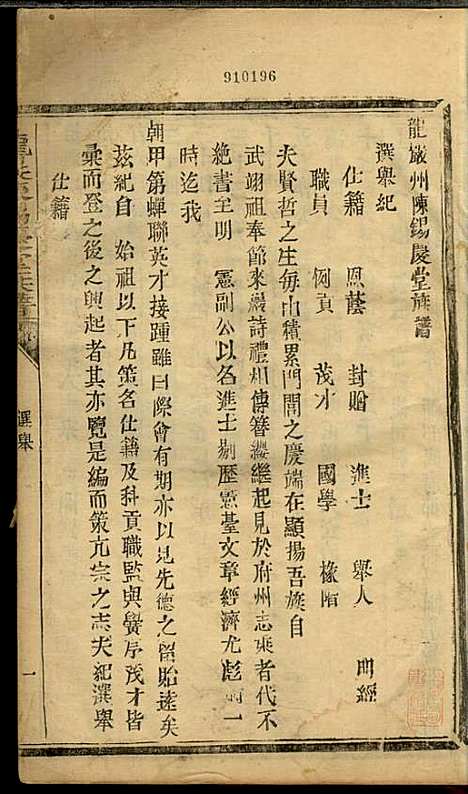 910196
龍巖州陳錫慶堂族譜
選舉紀
仕籍 恩蔭 封贈 進士 舉人 明經
職員 例貢 茂才 國學 椽陌
夫賢哲之生每由積累門閭之慶端在顯揚吾族自
武翊祖奉節來巖詩禮相傳簪纓繼起見於府州志乘者代不
絶書至明 憲副公以名進士剔歷憲臺文章經濟尤彪炳一
時迄我
朝甲第蟬聯英才接踵雖曰際會有期亦以見先德之留貽遠矣
茲紀自 始祖以下凡策名仕籍及科貢職監與黌序茂才皆
彙而登之後之興起者其亦覽是編而策亢宗之志夫紀選舉
仕籍
選舉
一